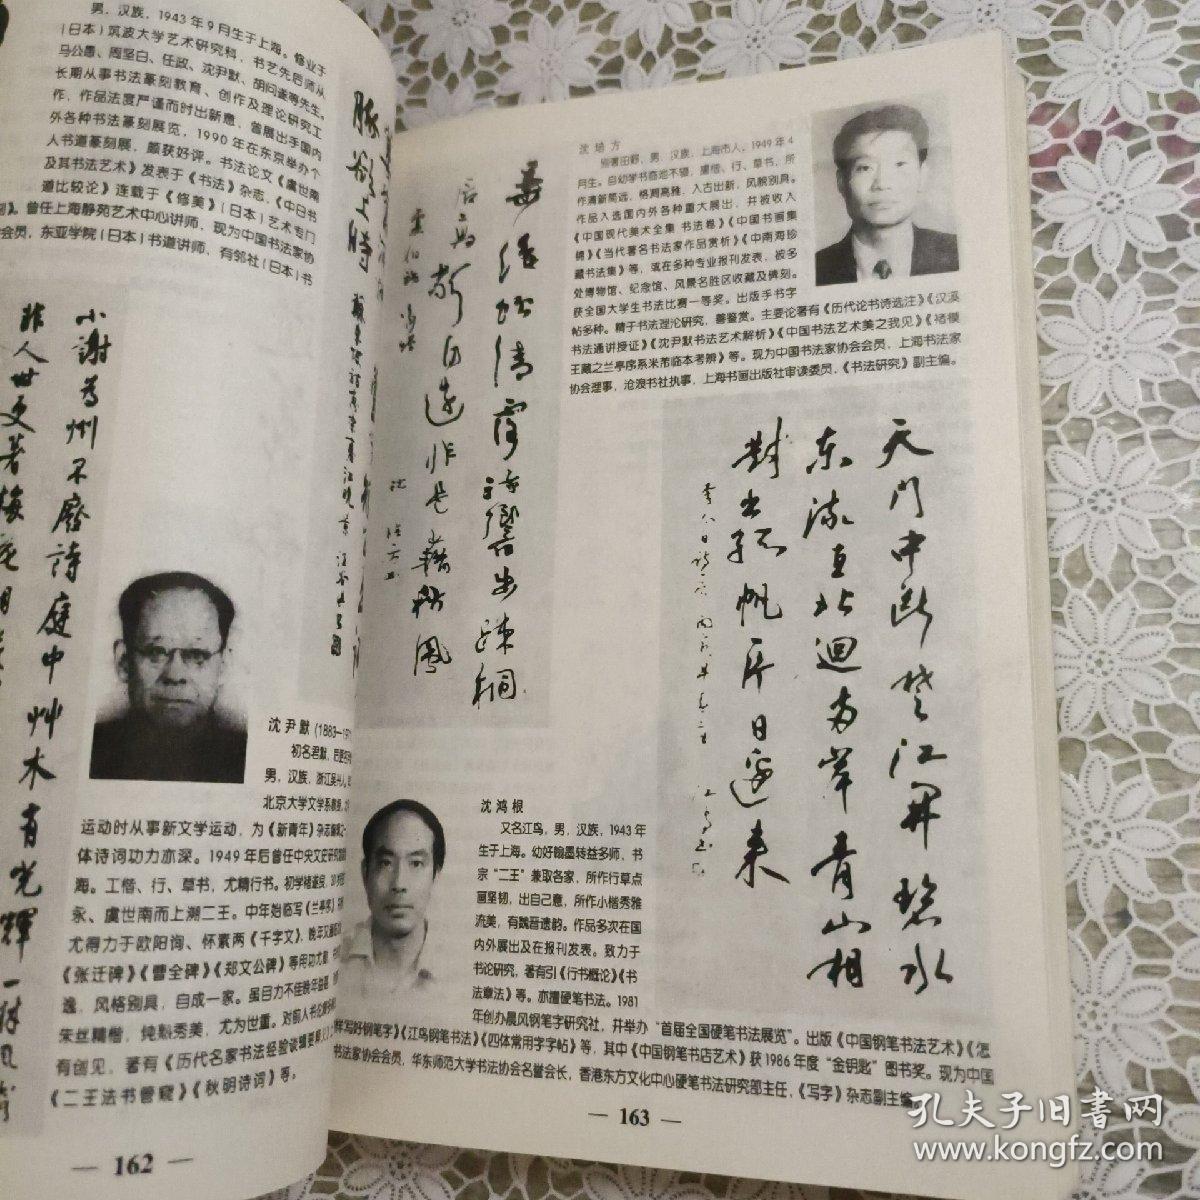 男，汉族，1943年9月生于上海。修业于
(日本)筑波大学艺术研究科，书艺先后师从
马公愚、周坚白、任政、沈尹默、胡问遂等先生。
长期从事书法篆刻教育、创作及理论研究工
作，作品法度严谨而时出新意，曾展出于国内
外各种书法篆刻展览，1990年在东京举办个
人书道篆刻展，颇获好评。书法论文《虞世南
及其书法艺术》发表于《书法》杂志，《中日书
道比较论》连载于《修美》(日本)艺术专门
刻》。曾任上海静苑艺术中心讲师，现为中国书法家协
会会员，东亚学院(日本)书道讲师，有邻社(日本)书
小谢为州不废诗庭中草木有光辉一林风
非人世更著梅花
沈尹默(1883—197
初名君默，
男，汉族，浙江吴兴人。
北京大学文学系教授，
运动时从事新文学运动，为《新青年》杂志编辑之一
体诗词功力亦深。1949年后曾任中央文史研究馆
海。工楷、行、草书，尤精行书。初学褚遂良，
永、虞世南而上溯二王。中年始临写《兰亭序》
尤得力于欧阳询、怀素两《千字文》，晚年又
《张迁碑》《曹全碑》《郑文公碑》等用功尤
逸，风格别具，自成一家。虽目力不佳晚年益甚，
朱丝精楷，纯懿秀美，尤为世重。对前人书论
有创见，著有《历代名家书法经验谈辑要释义》
《二王法书管窥》《秋明诗词》等。
— 162 —
垂緌饮清露流响出疏桐
居高声自远非是藉秋风
沈培方
别署田野，男，汉族，上海市人，1949年4
月生。自幼学书奋池不辍，擅楷、行、草书，所
作清新简远，格调高雅，入古出新，风貌别具。
作品入选国内外各种重大展出，并被收入
《中国现代美术全集 书法卷》《中国书画集
锦》《当代著名书法家作品赏析》《中南海珍
藏书法集》等，或在多种专业报刊发表，被多
处博物馆、纪念馆、风景名胜区收藏及碑刻。
获全国大学生书法比赛一等奖。出版手书字
帖多种。精于书法理论研究，善鉴赏。主要论著有《历代论书诗选注》《汉溪
书法通讲授证》《沈尹默书法艺术解析》《中国书法艺术美之我见》《褚模
王藏之兰亭序系米芾临本考辨》等。现为中国书法家协会会员，上海书法家
协会理事，沧浪书社执事，上海书画出版社审读委员，《书法研究》副主编。
天门中断楚江开碧水
东流直北迴两岸青山相
对出孤帆一片日边来
沈鸿根
又名江鸟，男，汉族，1943年
生于上海。幼好翰墨转益多师，书
宗“二王”兼取各家，所作行草点
画坚韧，出自己意，所作小楷秀雅
流美，有魏晋遗韵。作品多次在国
内外展出及在报刊发表。致力于
书论研究，著有引《行书概论》《书
法章法》等。亦擅硬笔书法。1981
年创办晨风钢笔字研究社，并举办“首届全国硬笔书法展览”。出版《中国钢笔书法艺术》《怎
样写好钢笔字》《江鸟钢笔书法》《四体常用字字帖》等，其中《中国钢笔书店艺术》获1986年度“金钥匙”图书奖。现为中国
书法家协会会员，华东师范大学书法协会名誉会长，香港东方文化中心硬笔书法研究部主任，《写字》杂志副主编。
— 163 —
孔夫子旧书网
www.kongfz.com